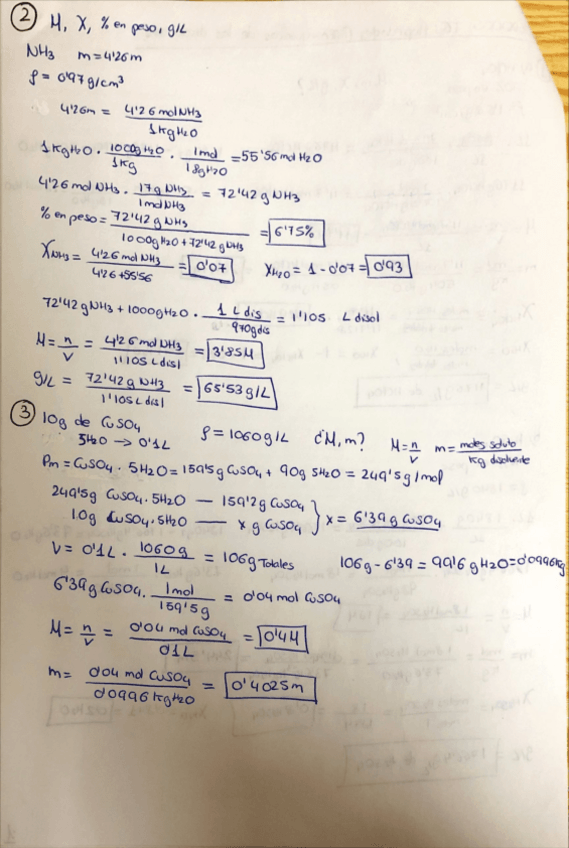 2 M, X, % en peso, g/L
NH3 m=4'26m
ρ = 0'97g/cm³
4'26m = 4'26 mol NH3 / 1KgH2O
1KgH2O · 1000gH2O / 1Kg · 1mol / 18gH2O = 55'56 mol H2O
4'26 mol NH3 · 17g NH3 / 1mol NH3 = 72'42g NH3
% en peso = 72'42g NH3 / 1000gH2O + 72'42g NH3 = 6'75%
XNH3 = 4'26 mol NH3 / 4'26+55'56 = 0'07 XH2O = 1 - 0'07 = 0'93
72'42g NH3 + 1000gH2O · 1 L dis / 970g dis = 1'105 L disol
M = n/V = 4'26 mol NH3 / 1'105 L disl = 3'85M
g/L = 72'42g NH3 / 1'105 L disl = 65'53 g/L
3 10g de CuSO4
5H2O → 0'1L ρ = 1060g/L ¿M, m? M = n/V m = moles soluto / Kg disolvente
Pm = CuSO4 · 5H2O = 159'5g CuSO4 + 90g 5H2O = 249'5g/mol
249'5g CuSO4·5H2O — 159'2g CuSO4
10g CuSO4·5H2O — x g CuSO4 } x = 6'39g CuSO4
V = 0'1L · 1060g / 1L = 106g Totales 106g - 6'39 = 99'6g H2O = 0'0996Kg
6'39g CuSO4 · 1mol / 159'5g = 0'04 mol CuSO4
M = n/V = 0'04 mol CuSO4 / 0'1L = 0'4M
m = 0'04 mol CuSO4 / 0'0996 KgH2O = 0'4025m